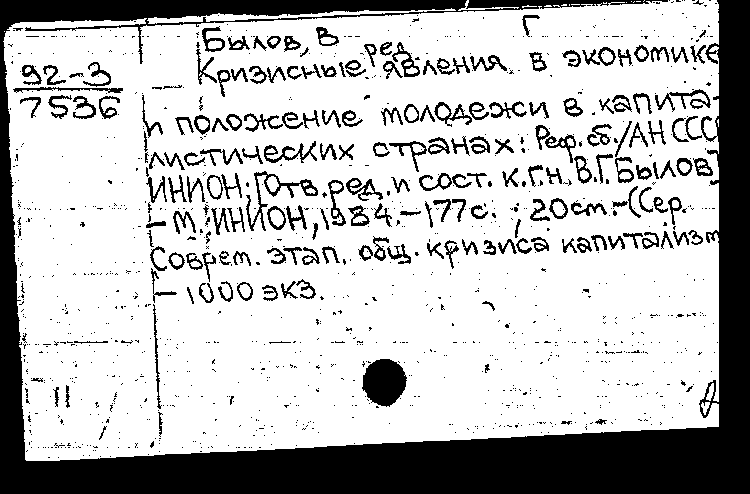 Былов, В Г
ред.
92-3
7536
Кризисные явления в экономике
и положение молодежи в капита-
листических странах: Реф. сб./АН СССР
ИНИОН; [Отв. ред. и сост. к.г.н. В.Г. Былов]
- М.: ИНИОН, 1984. - 177 с. ; 20 см. - (Сер.
Соврем. этап. общ. кризиса капитализм
- 1000 экз.
11